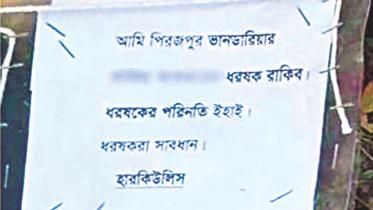 আমি পিরজপুর ভানডারিয়ার
ধরষক রাকিব।
ধরষকের পরিনতি ইহাই।
ধরষকরা সাবধান।
হারকিউলিস